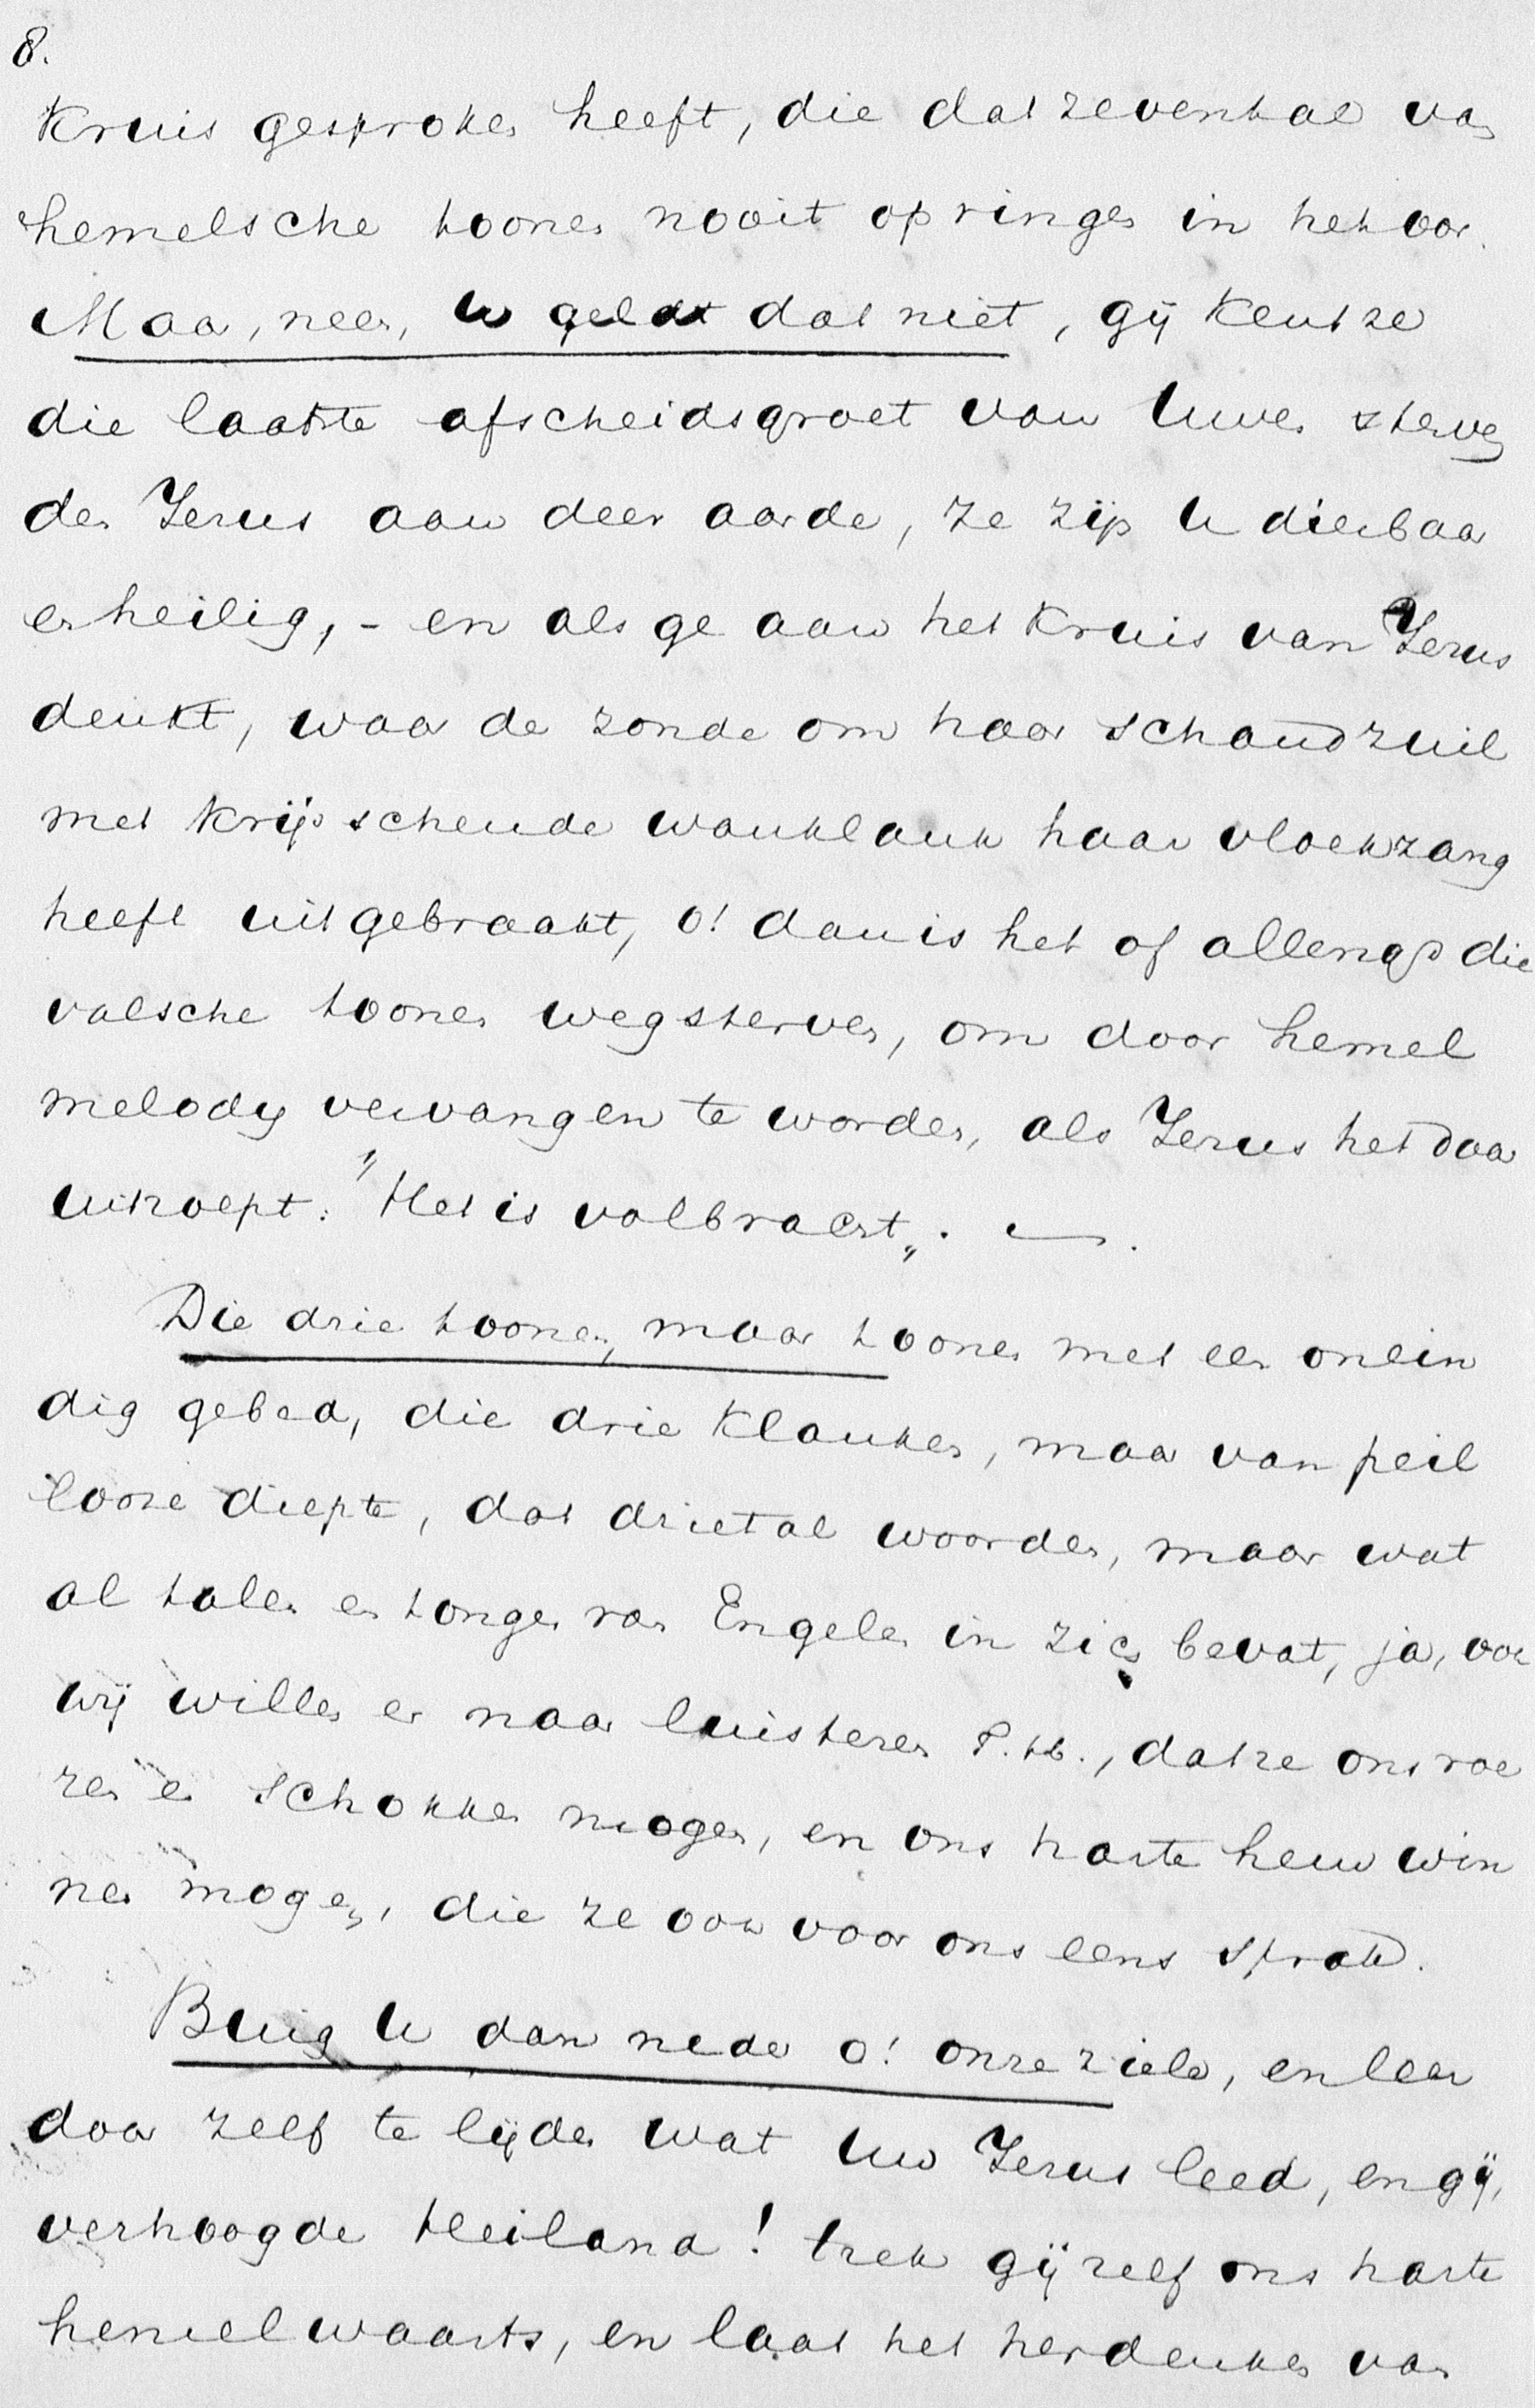 8.
Kruis gesproken heeft, die dat zevental van
hemelsche toonen nooit opvingen in het oor.
Maar, neen, U geldt dat niet, gij kent ze
die laatste afscheidsgroet van Uwen sterven
den Jezus aan deez aarde, ze zijn U dierbaar
en heilig, - en als ge aan het Kruis van Jezus
denkt, waar de zonde om haar schandzuil
met krijschende wanklank haar vloekzang
heeft uitgebraakt, o! dan is het of allengs die
valsche toonen wegsterven, om door hemel
melody vervangen te worden, als Jezus het daar
uitroept: "Het is volbracht„. —.
Die drie toonen, maar toonen met een onein
dig gebed, die drie klanken, maar van peil
looze diepte, dat drietal woorden, maar wat
al talen en tongen van Engelen in zich bevat, ja, ook
wij willen er naar luisteren G. H., dat ze ons roe
ren en schokken mogen, en ons harte hem win
nen mogen, die ze ook voor ons eens sprak.
Buig U dan neder o! onze ziele, en leer
door zelf te lijden wat Uw Jezus leed, en gij,
verhoogde Heiland! trek gij zelf ons harte
hemelwaarts, en laat het herdenken van